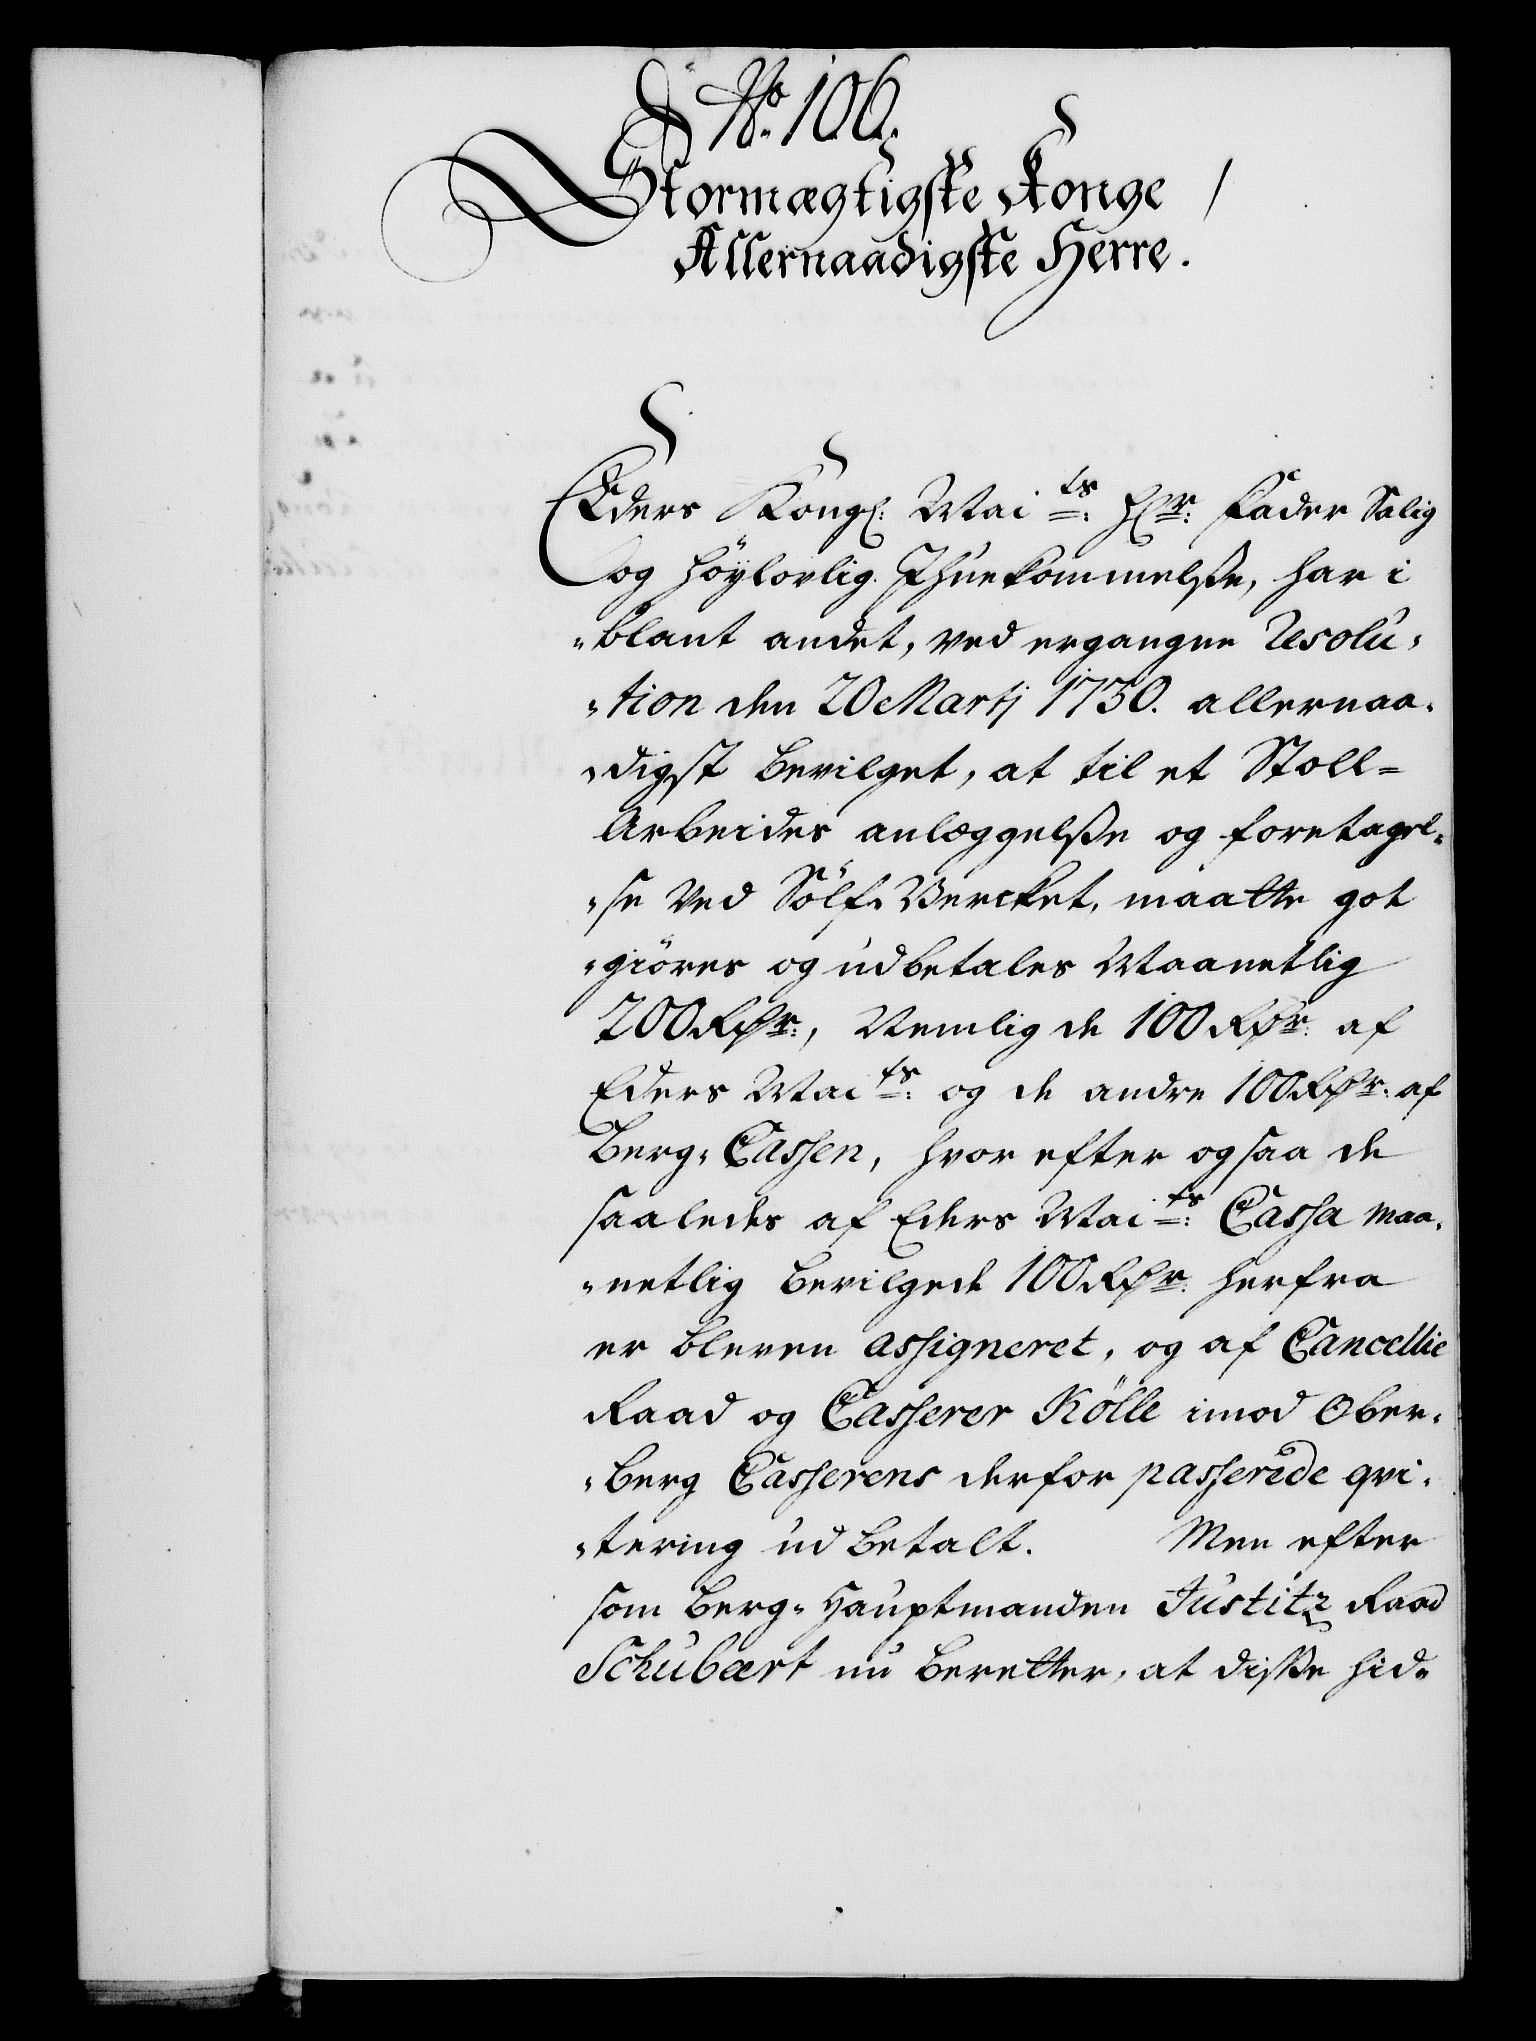 No. 106.
Stormægtigste Konge /
Allernaadigste Herre.
Eders Kongl: Maits: Hr: Fader Salig
og höylovlig Ihuekommelsse, har i
blant andet, ved ergangne Resolu-
-tion den 20 Martj 1730. allernaa-
-digst bevilget, at til et Stoll-
Arbeides anlæggelsse og foretagel-
-se ved Sölf-Vercket, maatte got
-giöres og udbetales Maanetlig
200 Rdr:, Nemlig de 100 Rdr: af
Eders Maits: og de andre 100 Rdr: af
Berg-Cassen, hvor efter ogsaa de
saaledes af Eders Maits: Cassa maa-
-netlig bevilgede 100 Rdr: herfra
er bleven assigneret, og af Cancellie
Raad og Casserer Kölle imod Ober-
-berg Casserens derfor passerede qvi-
-tering udbetalt. Men efter
som Berg-Hauptmanden Justitz Raad
Schubært nu beretter, at disse hid-